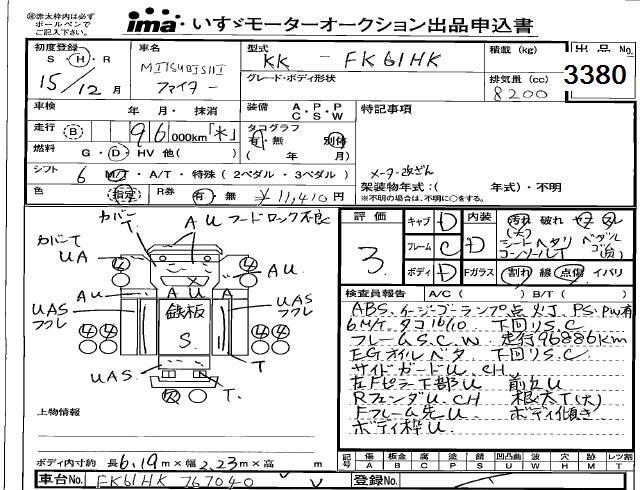 ima いすゞモーターオークション出品申込書
㊟赤太枠内は必ず
ボールペンで
ご記入下さい。
初度登録
S・H・R
15/12 月
車名
MITSUBISHI
ファイター
型式
KK - FK61HK
グレード・ボディ形状
積載 (kg)
排気量 (cc)
8200
出品No.
3380
車検 年・月・抹消
走行 B 96 000km「米」
燃料 G・D・HV 他( )
シフト 6 M/T・A/T・特殊 (2ペダル・3ペダル)
色 指定 R券 有・無 ¥11,410円
装備 A・P・P
C・S・W
タコグラフ
有・無 別体
( 年 月)
特記事項
メーター改ざん
架装物年式:( 年式)・不明
※不明の場合は、不明に○をして下さい。
評価
3
キャブ D
フレーム C
ボディ D
内装 D
汚れ 破れ ヤニ スレ
(大)
シートヘタリ
コンソールT
Fガラス 割れ 線 点傷 イパリ
カバーT
AU フードロック不良
カバーT
UA
④
④
AU
AU
A U
UAS
フクレ
鉄板
S.
UAS
フクレ
④④
④④
T
UAS
T.
検査員報告 A/C( ) B/T( )
ABS. イージーゴーランプ点灯 PS・PW有
6M/T タコ16/10 下回りS.C
フレームS.C.W 走行96886km
EGオイルベタ 下回りS.C
サイドガードU.CH
左Fピラー下部U 前立U
RフェンダU.CH 根太T(大)
Fフレーム先U ボディ傾き
ボディ枠U.
上物情報
ボディ内寸約 長6.19m×幅2.23m×高 m
記号 傷A 板金B 腐C 塗P 錆S 凹U 凸凹W 曲り 交換X 穴H 跡M レツ割T
車台No. FK61HK 767040
登録No.